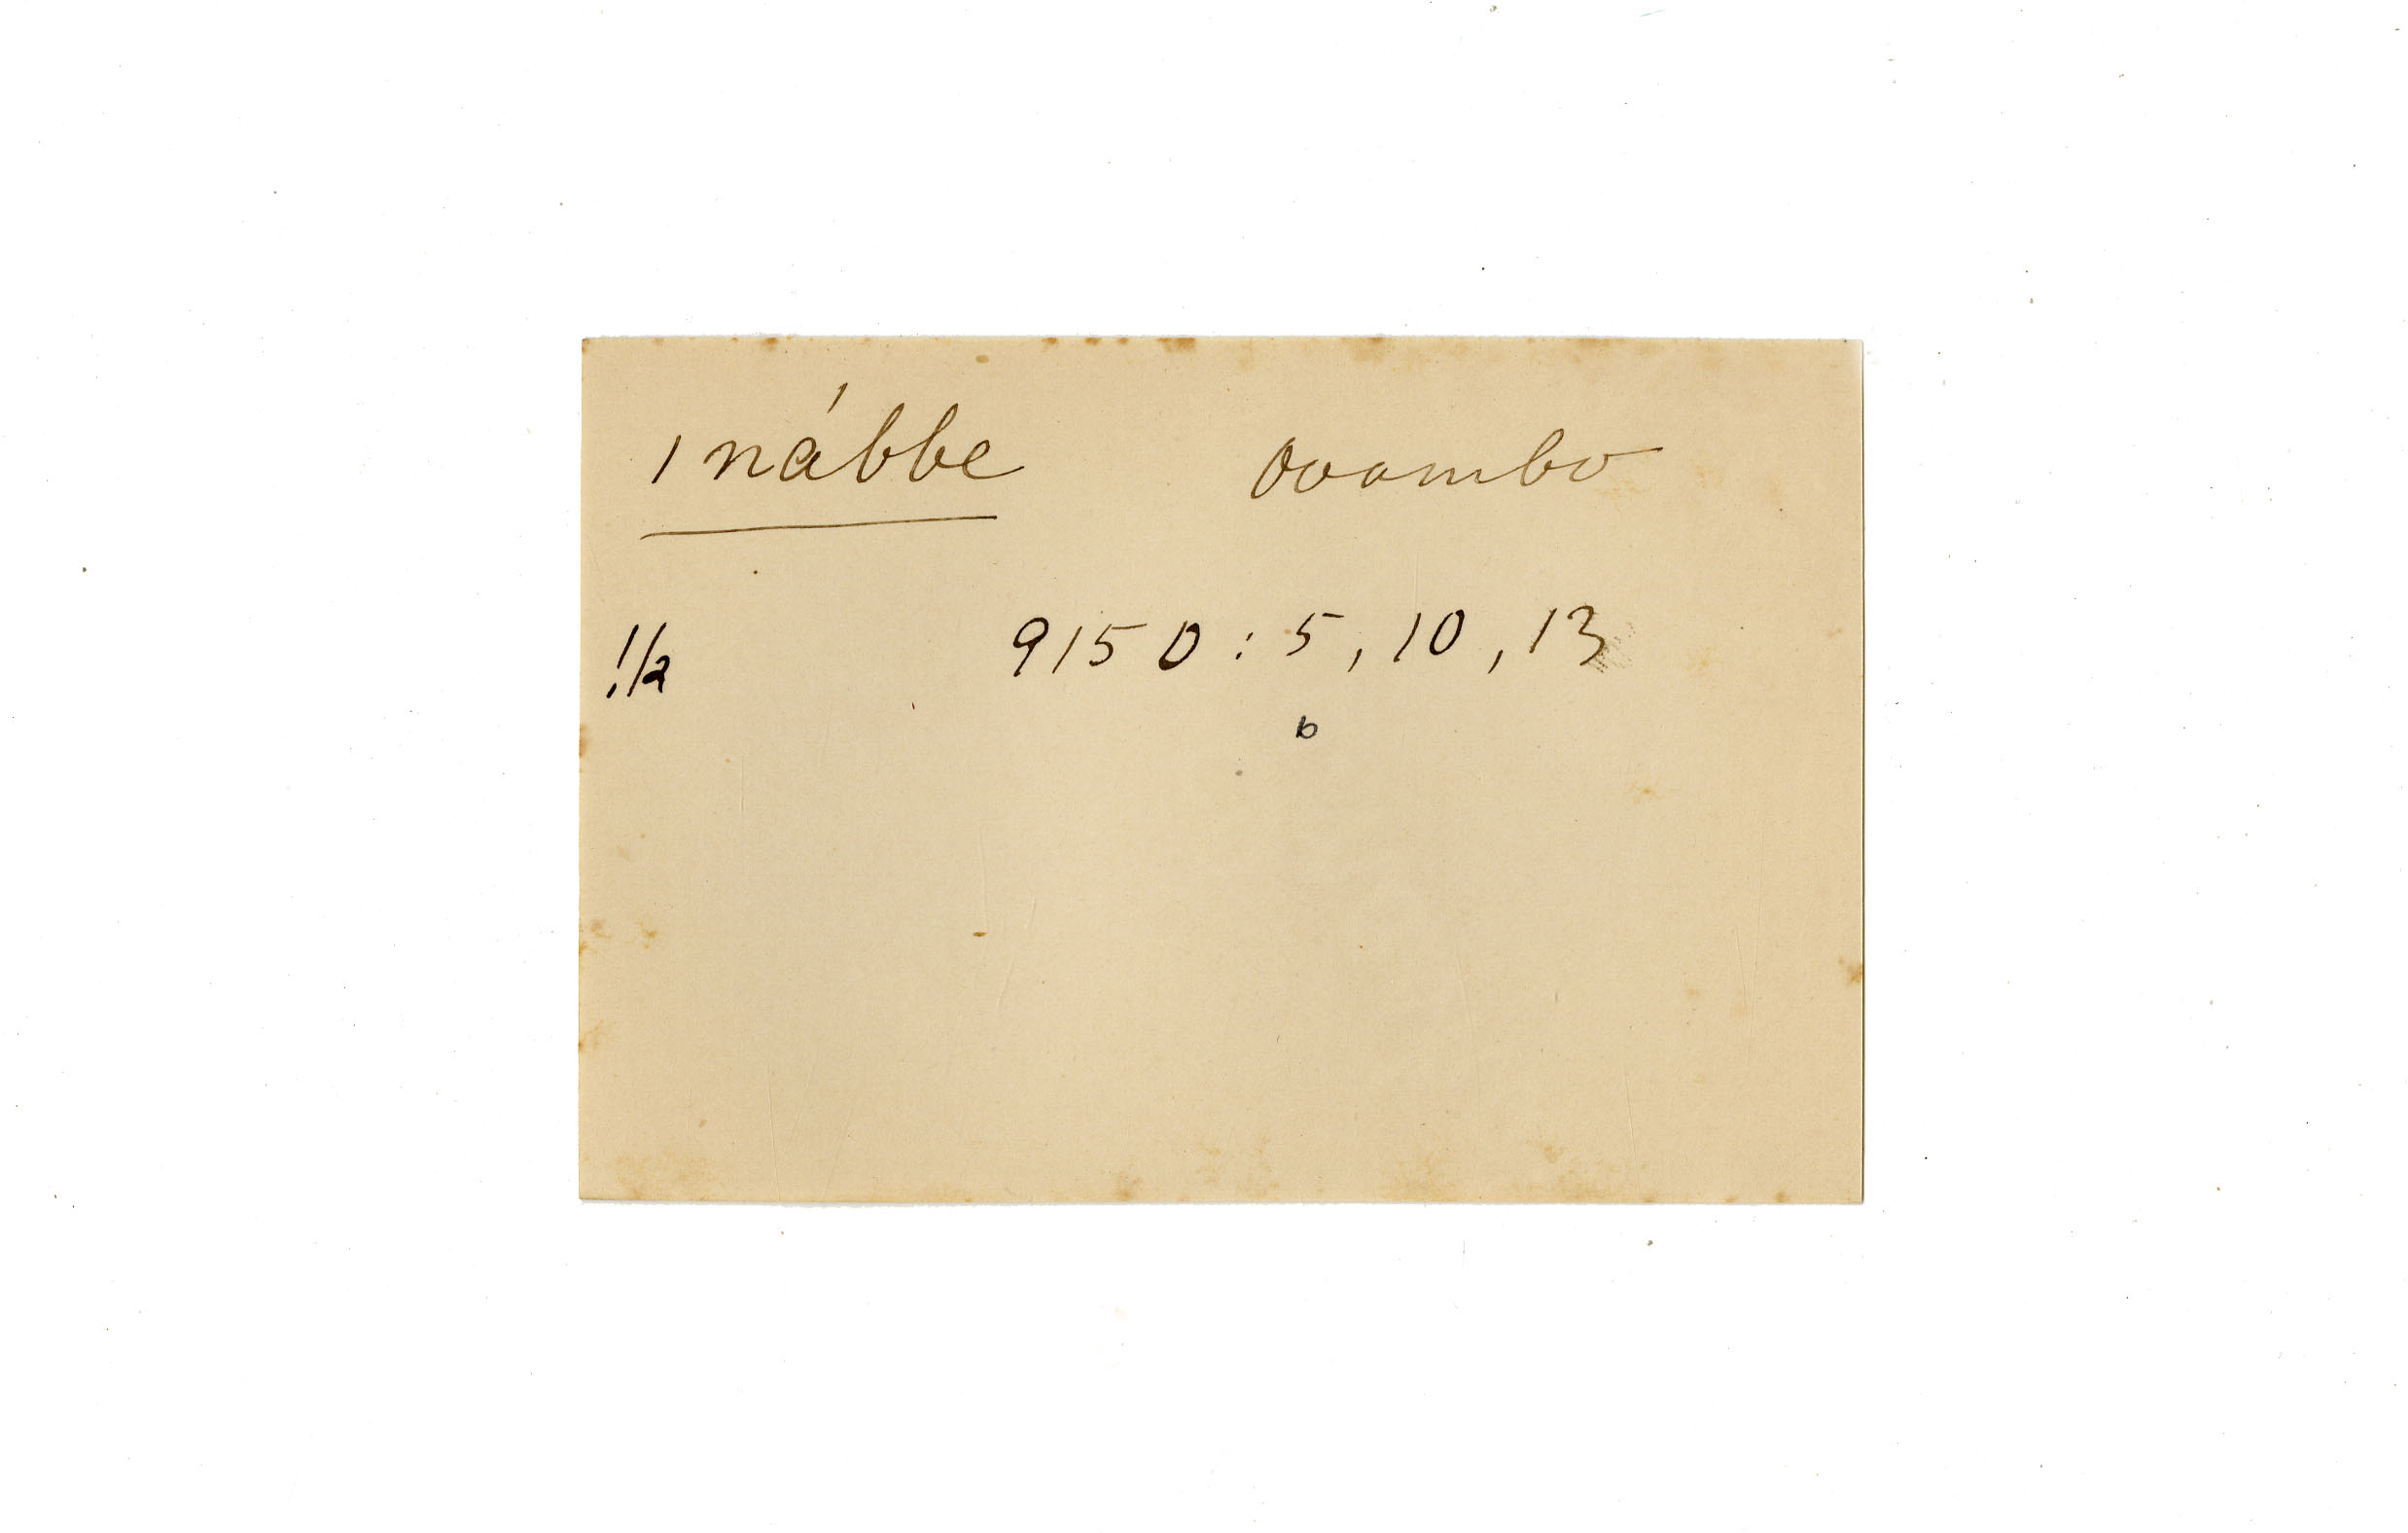 ǀnábbe Ovambo
!k 9150 : 5, 10, 13
b